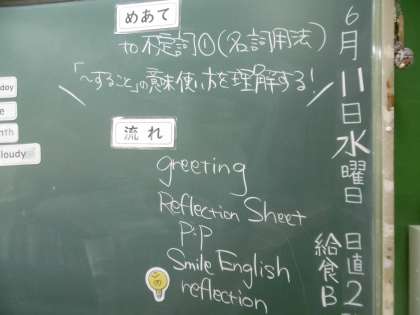 めあて
to不定詞①(名詞用法)
「~すること」の意味使い方を理解する!
流れ
greeting
Reflection Sheet
P.P
Smile English
reflection
6月11日水曜日
日直2
給食B
day
e
nth
loudy